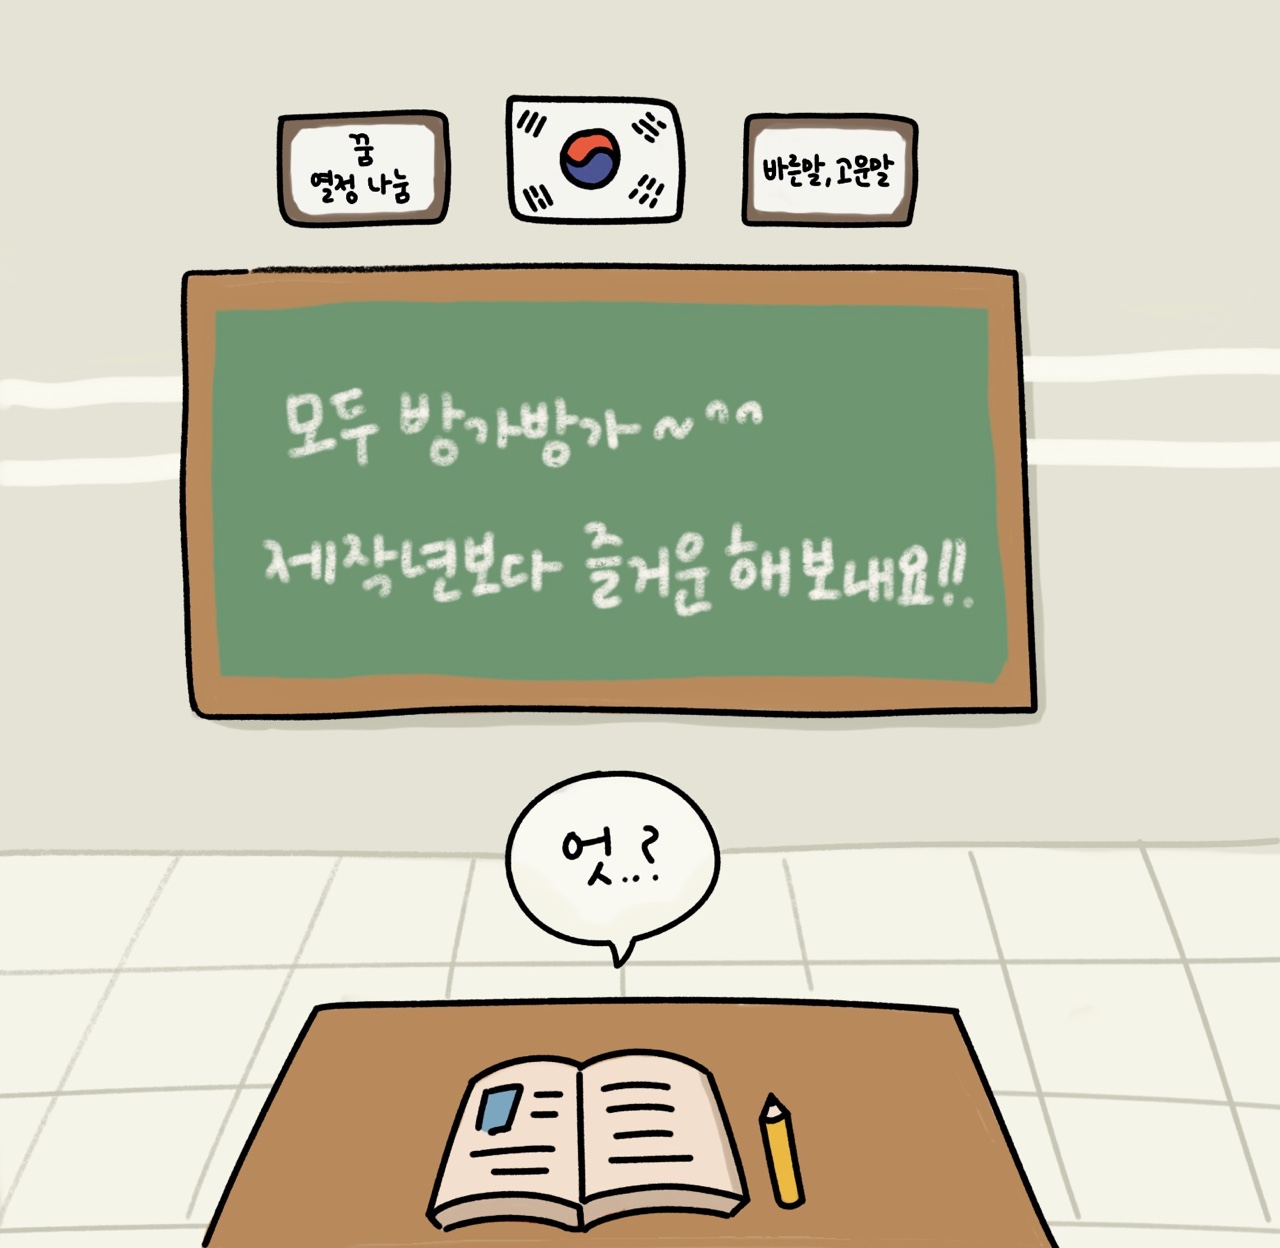 꿈
열정 나눔
바른말, 고운말
모두 방가방가~^^
제작년보다 즐거운 해 보내요!!
엇..?